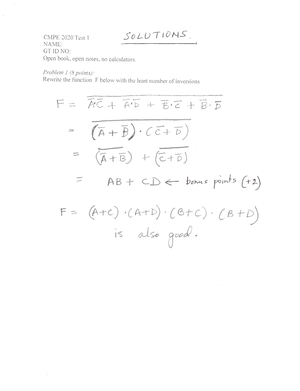 CMPE 2020 Test 1
SOLUTIONS
NAME:
GT ID NO:
Open book, open notes, no calculators.
Problem 1 (8 points):
Rewrite the function F below with the least number of inversions
F = \overline{\overline{A}·\overline{C} + \overline{A}·\overline{D} + \overline{B}·\overline{C} + \overline{B}·\overline{D}}
= \overline{(\overline{A} + \overline{B}) · (\overline{C} + \overline{D})}
= \overline{(\overline{A} + \overline{B})} + \overline{(\overline{C} + \overline{D})}
= AB + CD ← bonus points (+2)
F = (A+C) · (A+D) · (B+C) · (B+D)
is also good.